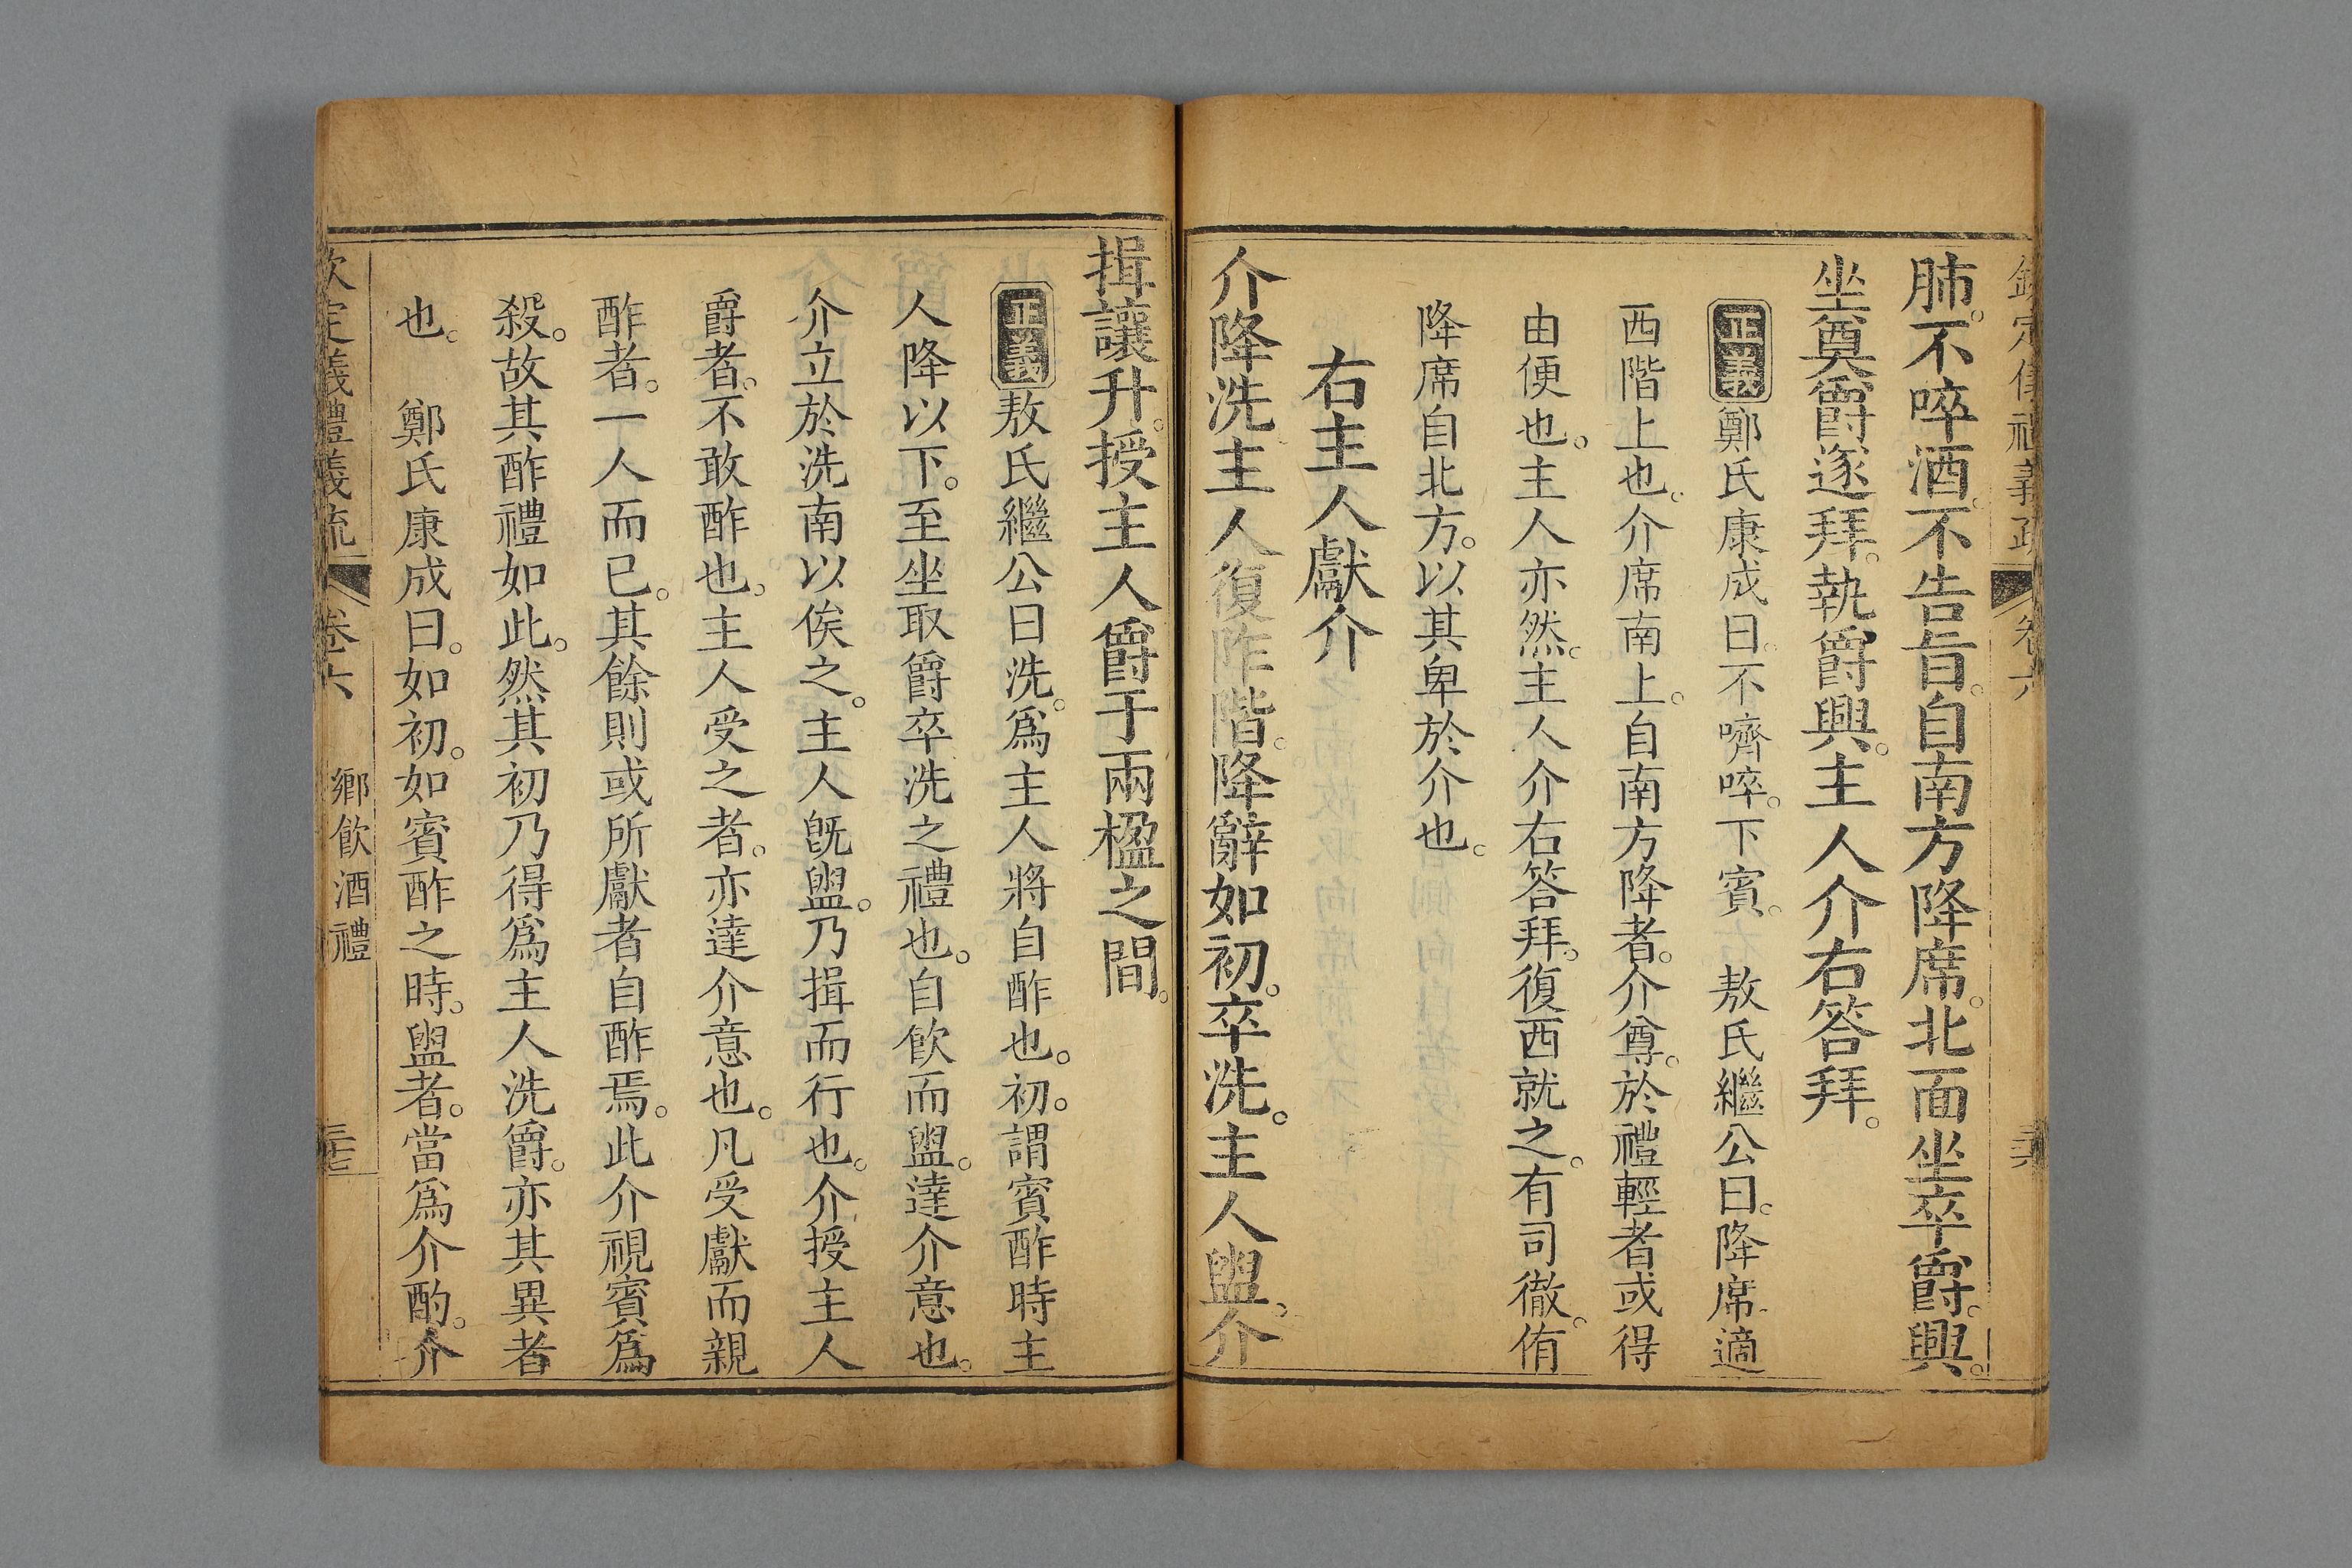 肺。不啐酒。不告旨。自南方降席。北面坐卒爵。興。
坐奠爵遂拜。執爵興。主人介右答拜。
正義鄭氏康成曰。不嚌啐。下賓。　敖氏繼公曰。降席。適
西階上也。介席南上。自南方降者。介尊。於禮輕者或得
由便也。主人亦然。主人介右答拜。復西就之。有司徹。侑
降席自北方。以其卑於介也。
右主人獻介
介降洗主人復阼階。降辭如初。卒洗。主人盥。介
揖讓升。授主人爵于兩楹之間。
正義敖氏繼公曰洗。爲主人將自酢也。初。謂賓酢時主
人降以下。至坐取爵卒洗之禮也。自飲而盥。達介意也。
介立於洗南以俟之。主人旣盥。乃揖而行也。介授主人
爵者。不敢酢也。主人受之者。亦達介意也。凡受獻而親
酢者。一人而已。其餘則或所獻者自酢焉。此介視賓爲
殺。故其酢禮如此。然其初乃得爲主人洗爵。亦其異者
也。　鄭氏康成曰。如初。如賓酢之時。盥者。當爲介酌。介
欽定義禮義疏　卷六　鄉飲酒禮　三七